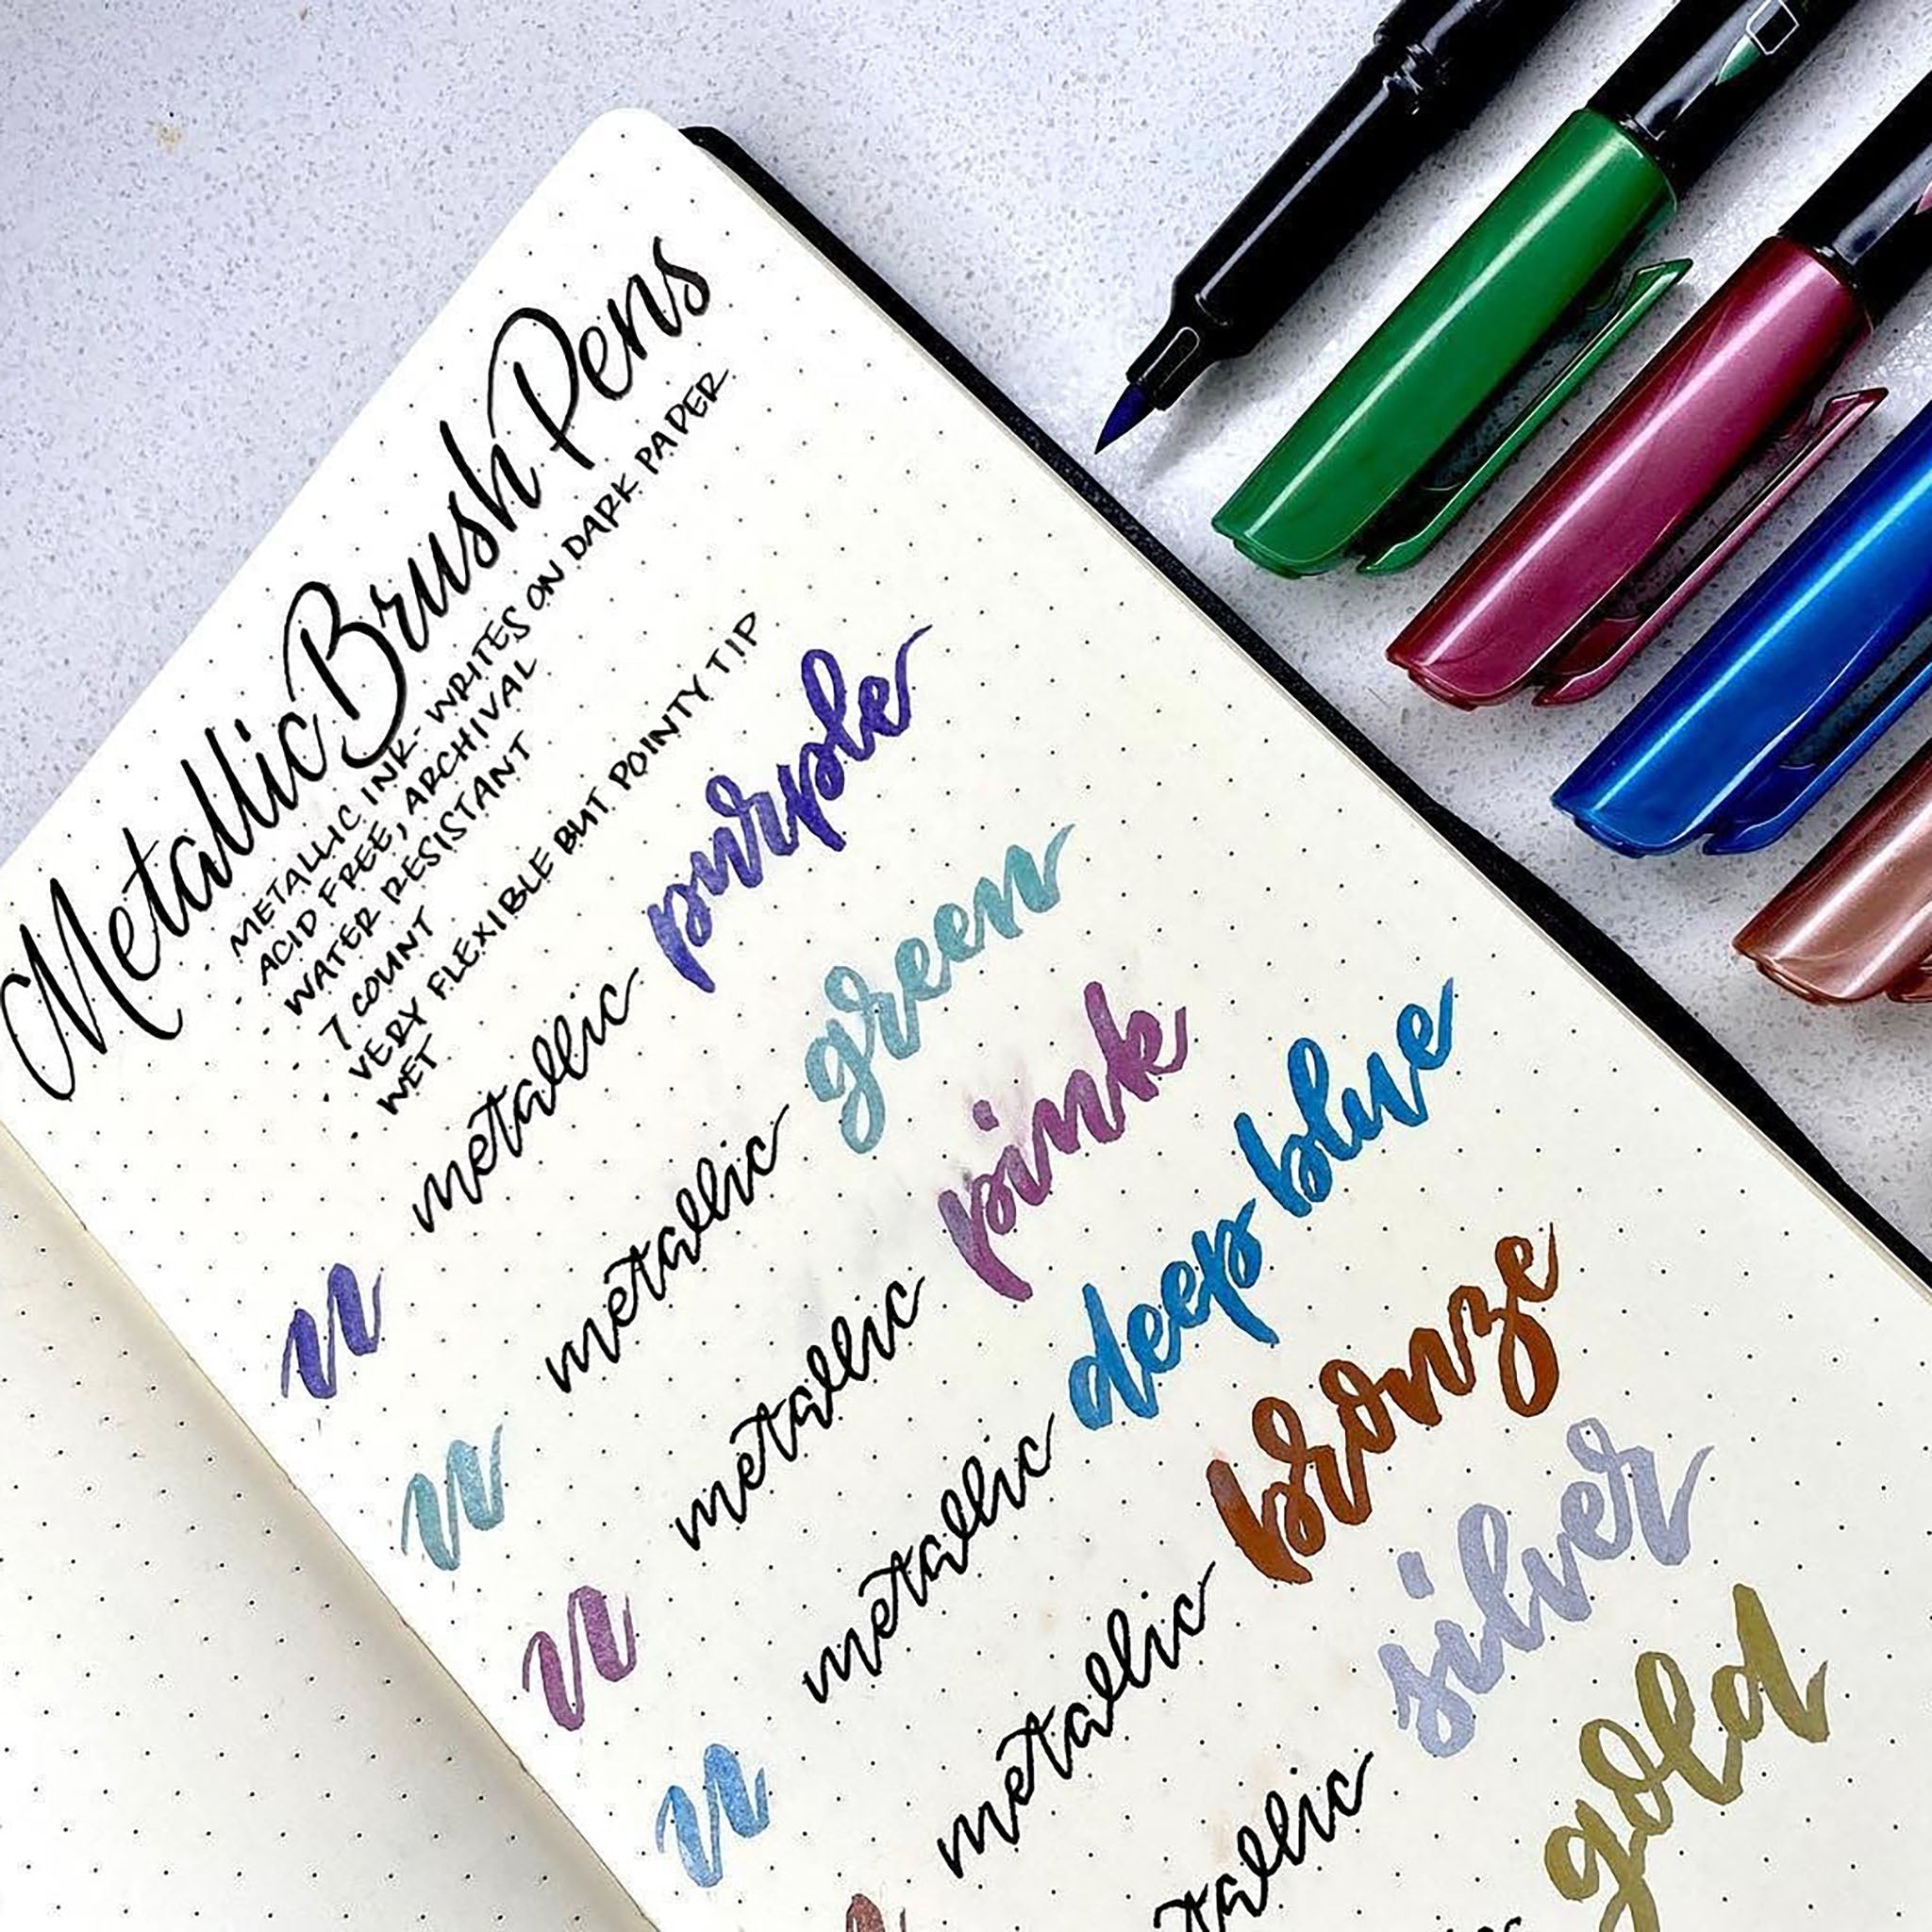 Metallic Brush Pens
· METALLIC INK - WRITES ON DARK PAPER
· ACID FREE, ARCHIVAL
· WATER RESISTANT
· 7 COUNT
· VERY FLEXIBLE BUT POINTY TIP
· WET
metallic purple
metallic green
metallic pink
metallic deep blue
metallic bronze
silver
gold